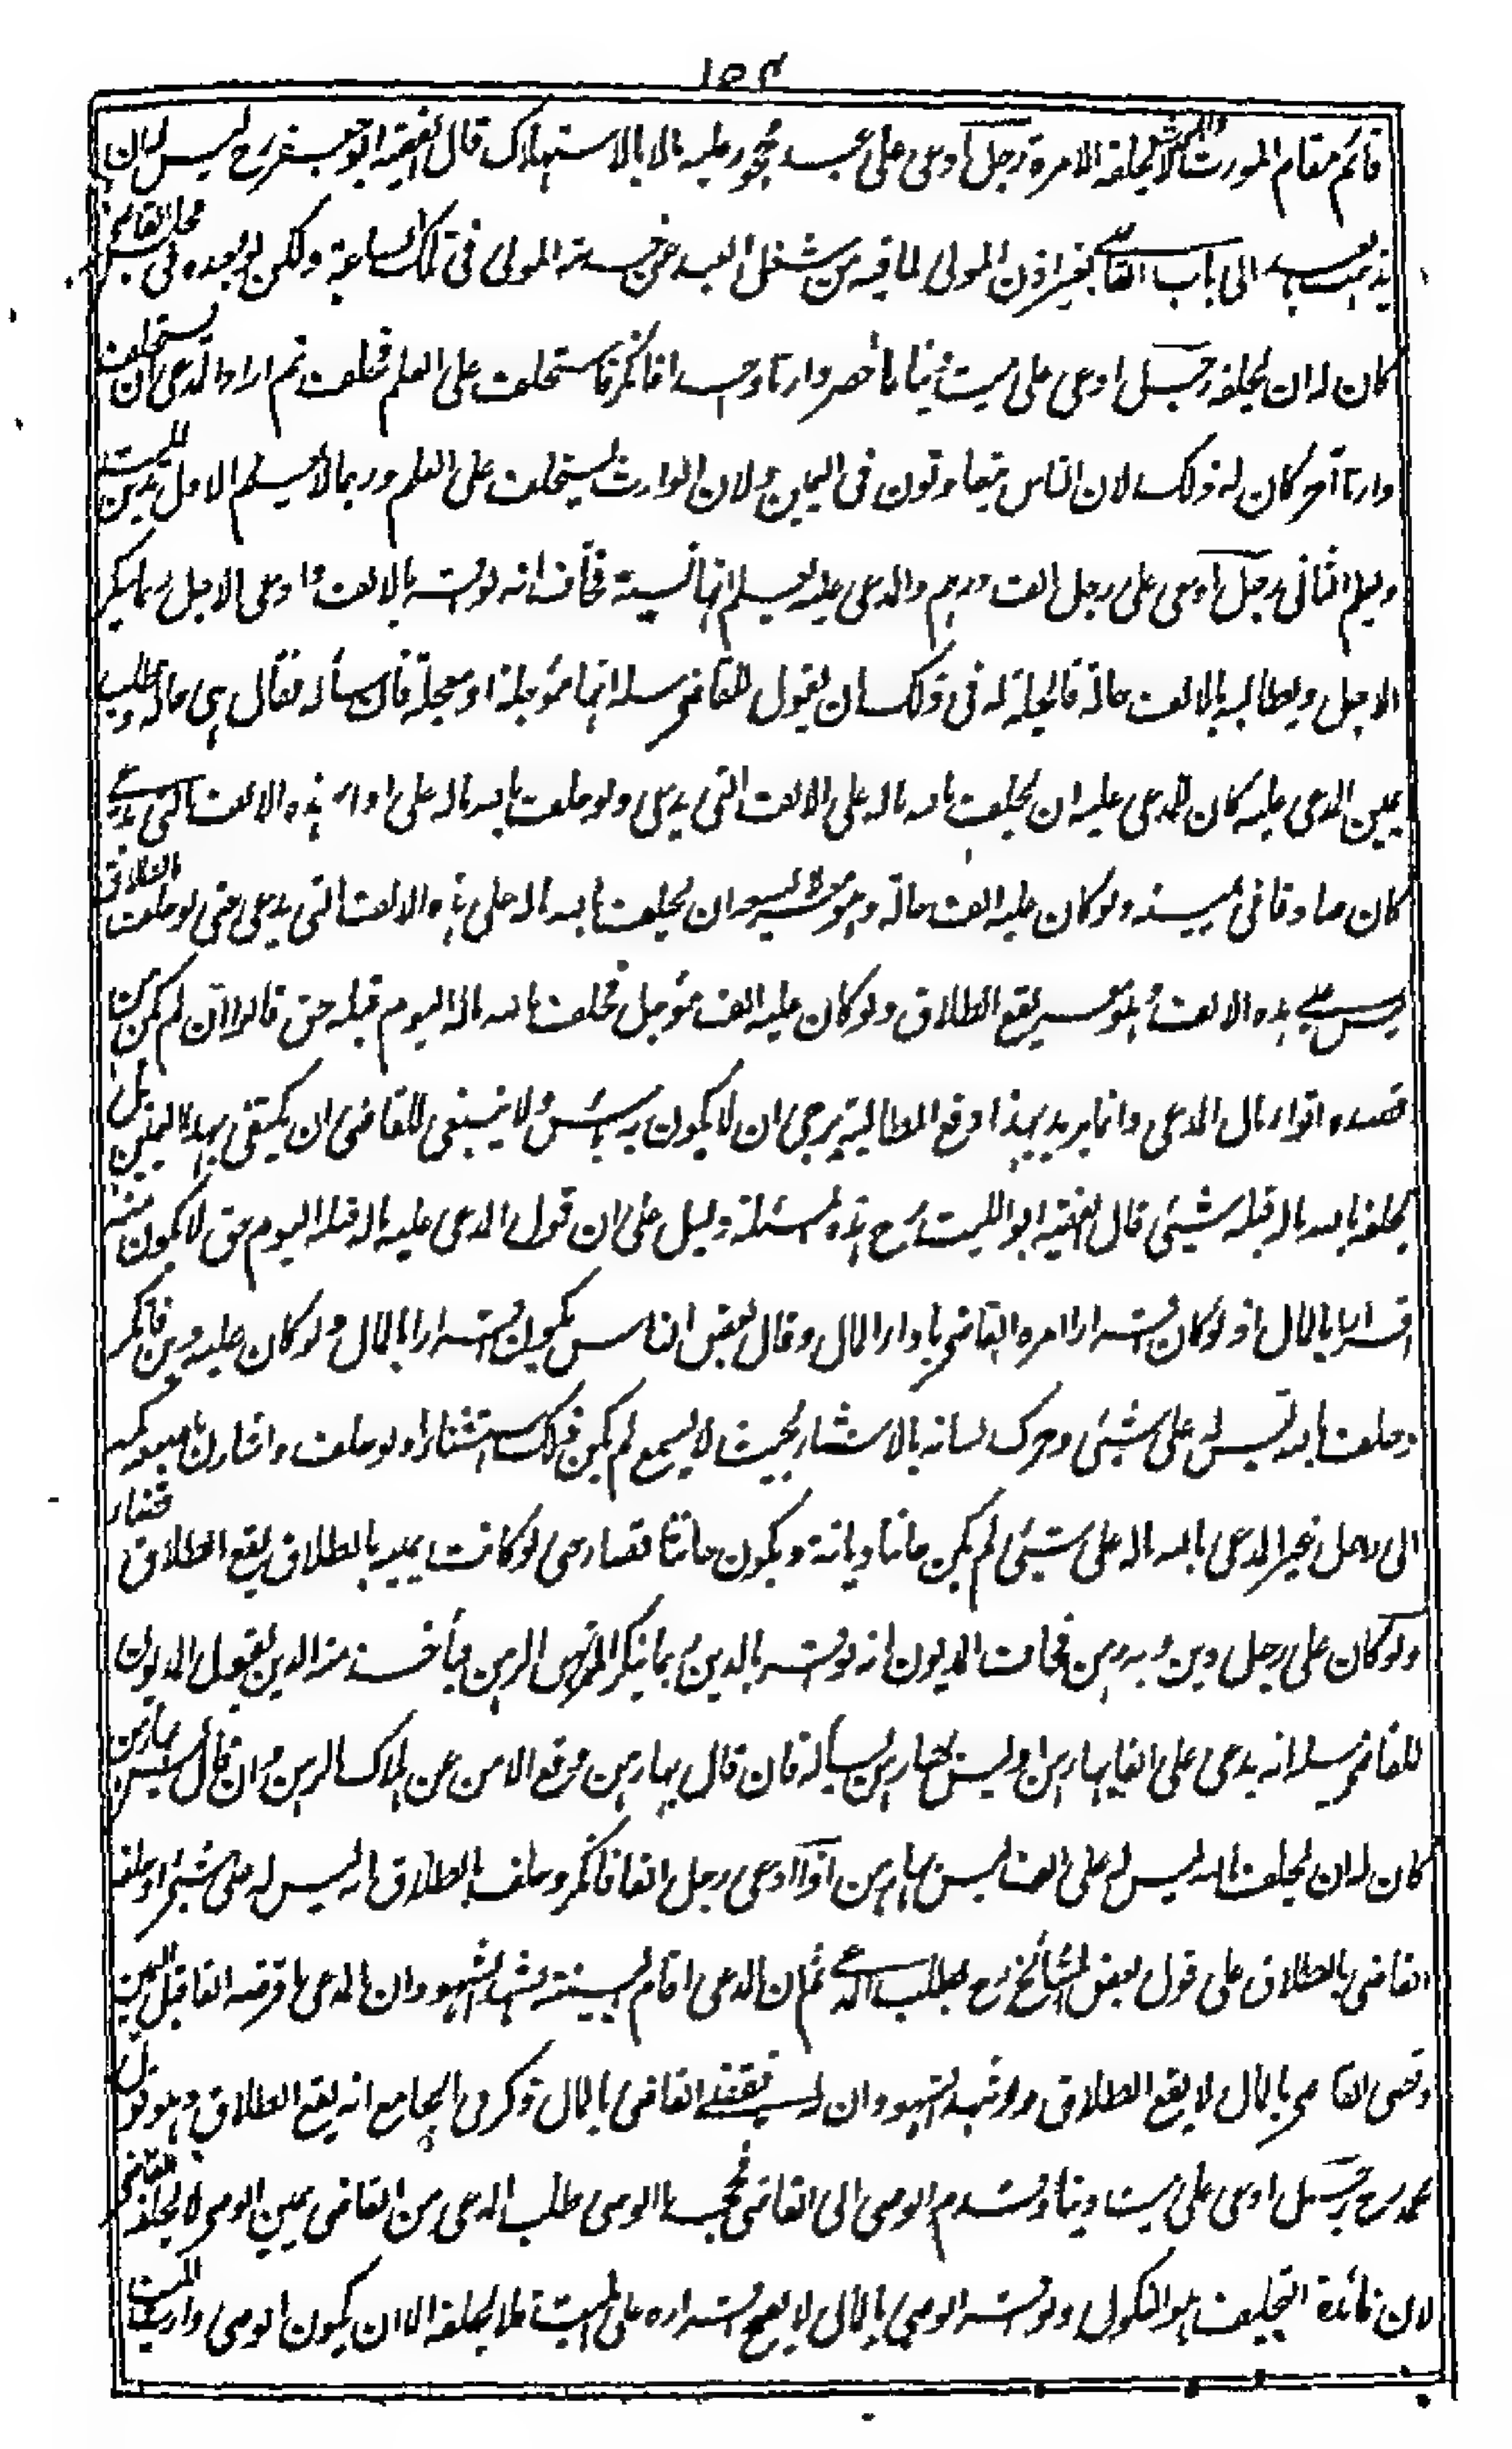 ١٥٤
قائم مقام المورث لا يحلفه الا مرة رجل ادعى على عبد محجور عليه مالا بالاستهلاك قال الفقيه ابو جعفر رح ليس له ان
يذهب به الى باب القاضي بغير اذن المولى لما فيه من شغل العبد عن خدمة المولى في تلك الساعة ولكن لو وجده في مجلس القاضي
كان له ان يحلفه رجل ادعى على ميت دينا فاحضر وارثا واحدا فانكر فاستحلف على العلم فحلف ثم اراد المدعي ان يستحلف
وارثا آخر كان له ذلك لان الناس يتفاوتون في اليمين ولان الوارث يستحلف على العلم وربما لا يعلم الاول بدين الميت
ويعلم الثاني رجل ادعى على رجل الف درهم والمدعى عليه يعلم انها نسيئة فخاف انه لو اقر بالالف وادعى الاجل ربما ينكر
الاجل ويطالبه بالالف حالة فالحيلة له في ذلك ان يقول للقاضي سله انها مؤجلة او معجلة فان سأله فقال هي حالة وطلب
يمين المدعى عليه كان للمدعى عليه ان يحلف بالله ماله على الالف التي يدعي ولو حلف بالله ماله على اداء هذه الالف التي يدعي
كان صادقا في يمينه ولو كان عليه الف حالة وهو معسر لا يسعه ان يحلف بالله ماله على هذه الالف التي يدعي حتى لو حلف بالطلاق
ليس علي هذه الالف وهو معسر يقع الطلاق ولو كان عليه الف مؤجل فحلف بالله ماله اليوم قبله حق قالوا ان لم يكن من
قصده اتواء مال المدعي وانما يريد بهذا دفع المطالبة يرجى ان لا يكون به بأس ولا ينبغي للقاضي ان يكتفي بهذا اليمين بل
يحلفه بالله ماله قبله شيئ قال الفقيه ابو الليث رح هذه المسئلة دليل على ان قول المدعى عليه ماله قبله اليوم حق لا يكون منه
اقرارا بالمال اذ لو كان اقرارا لامره القاضي باداء المال وقال بعض الناس يكون اقرارا بالمال ولو كان عليه دين فانكر
وحلف بالله ليس له علي شيئ وحرك لسانه بالاستثناء بحيث لا يسمع لم يكن ذلك استثناء ولو حلف واشار باصبعه في كمه
الى رجل غير المدعي بالله ماله علي شيئ لم يكن حانثا ديانة ويكون حانثا قضاء حتى لو كانت يمينه بالطلاق يقع الطلاق قضاء
ولو كان على رجل دين وبه رهن فخاف المديون انه لو اقر بالدين ربما ينكر المرتهن الرهن ويأخذ منه الدين يقول المديون
للقاضي سله انه يدعي علي الفا بها رهن او ليس بها رهن يسأله فان قال بها رهن وقع الامن عن هلاك الرهن وان قال ليس بها رهن
كان له ان يحلف بالله ليس له علي الف ليس بها رهن اذا ادعى رجل الفا فانكر وحلف بالطلاق انه ليس له علي شيئ او حلفه
القاضي بالطلاق على قول بعض المشائخ رح بطلب المدعي ثم ان المدعي اقام البينة يشهد الشهود ان المدعي اقرضه الفا قبل اليمين
وقضى القاضي بالمال لا يقع الطلاق ولو شهد الشهود ان له يقضى القاضي بالمال ذكر في الجامع انه يقع الطلاق وهو قول
محمد رح رجل ادعى على ميت دينا وقدم الوصي الى القاضي فجحد الوصي طلب المدعي من القاضي يمين الوصي لا يحلفه القاضي
لان فائدة التحليف هو النكول ولو اقر الوصي بالمال لا يصح اقراره على الميت فلا يحلفه الا ان يكون الوصي وارث الميت